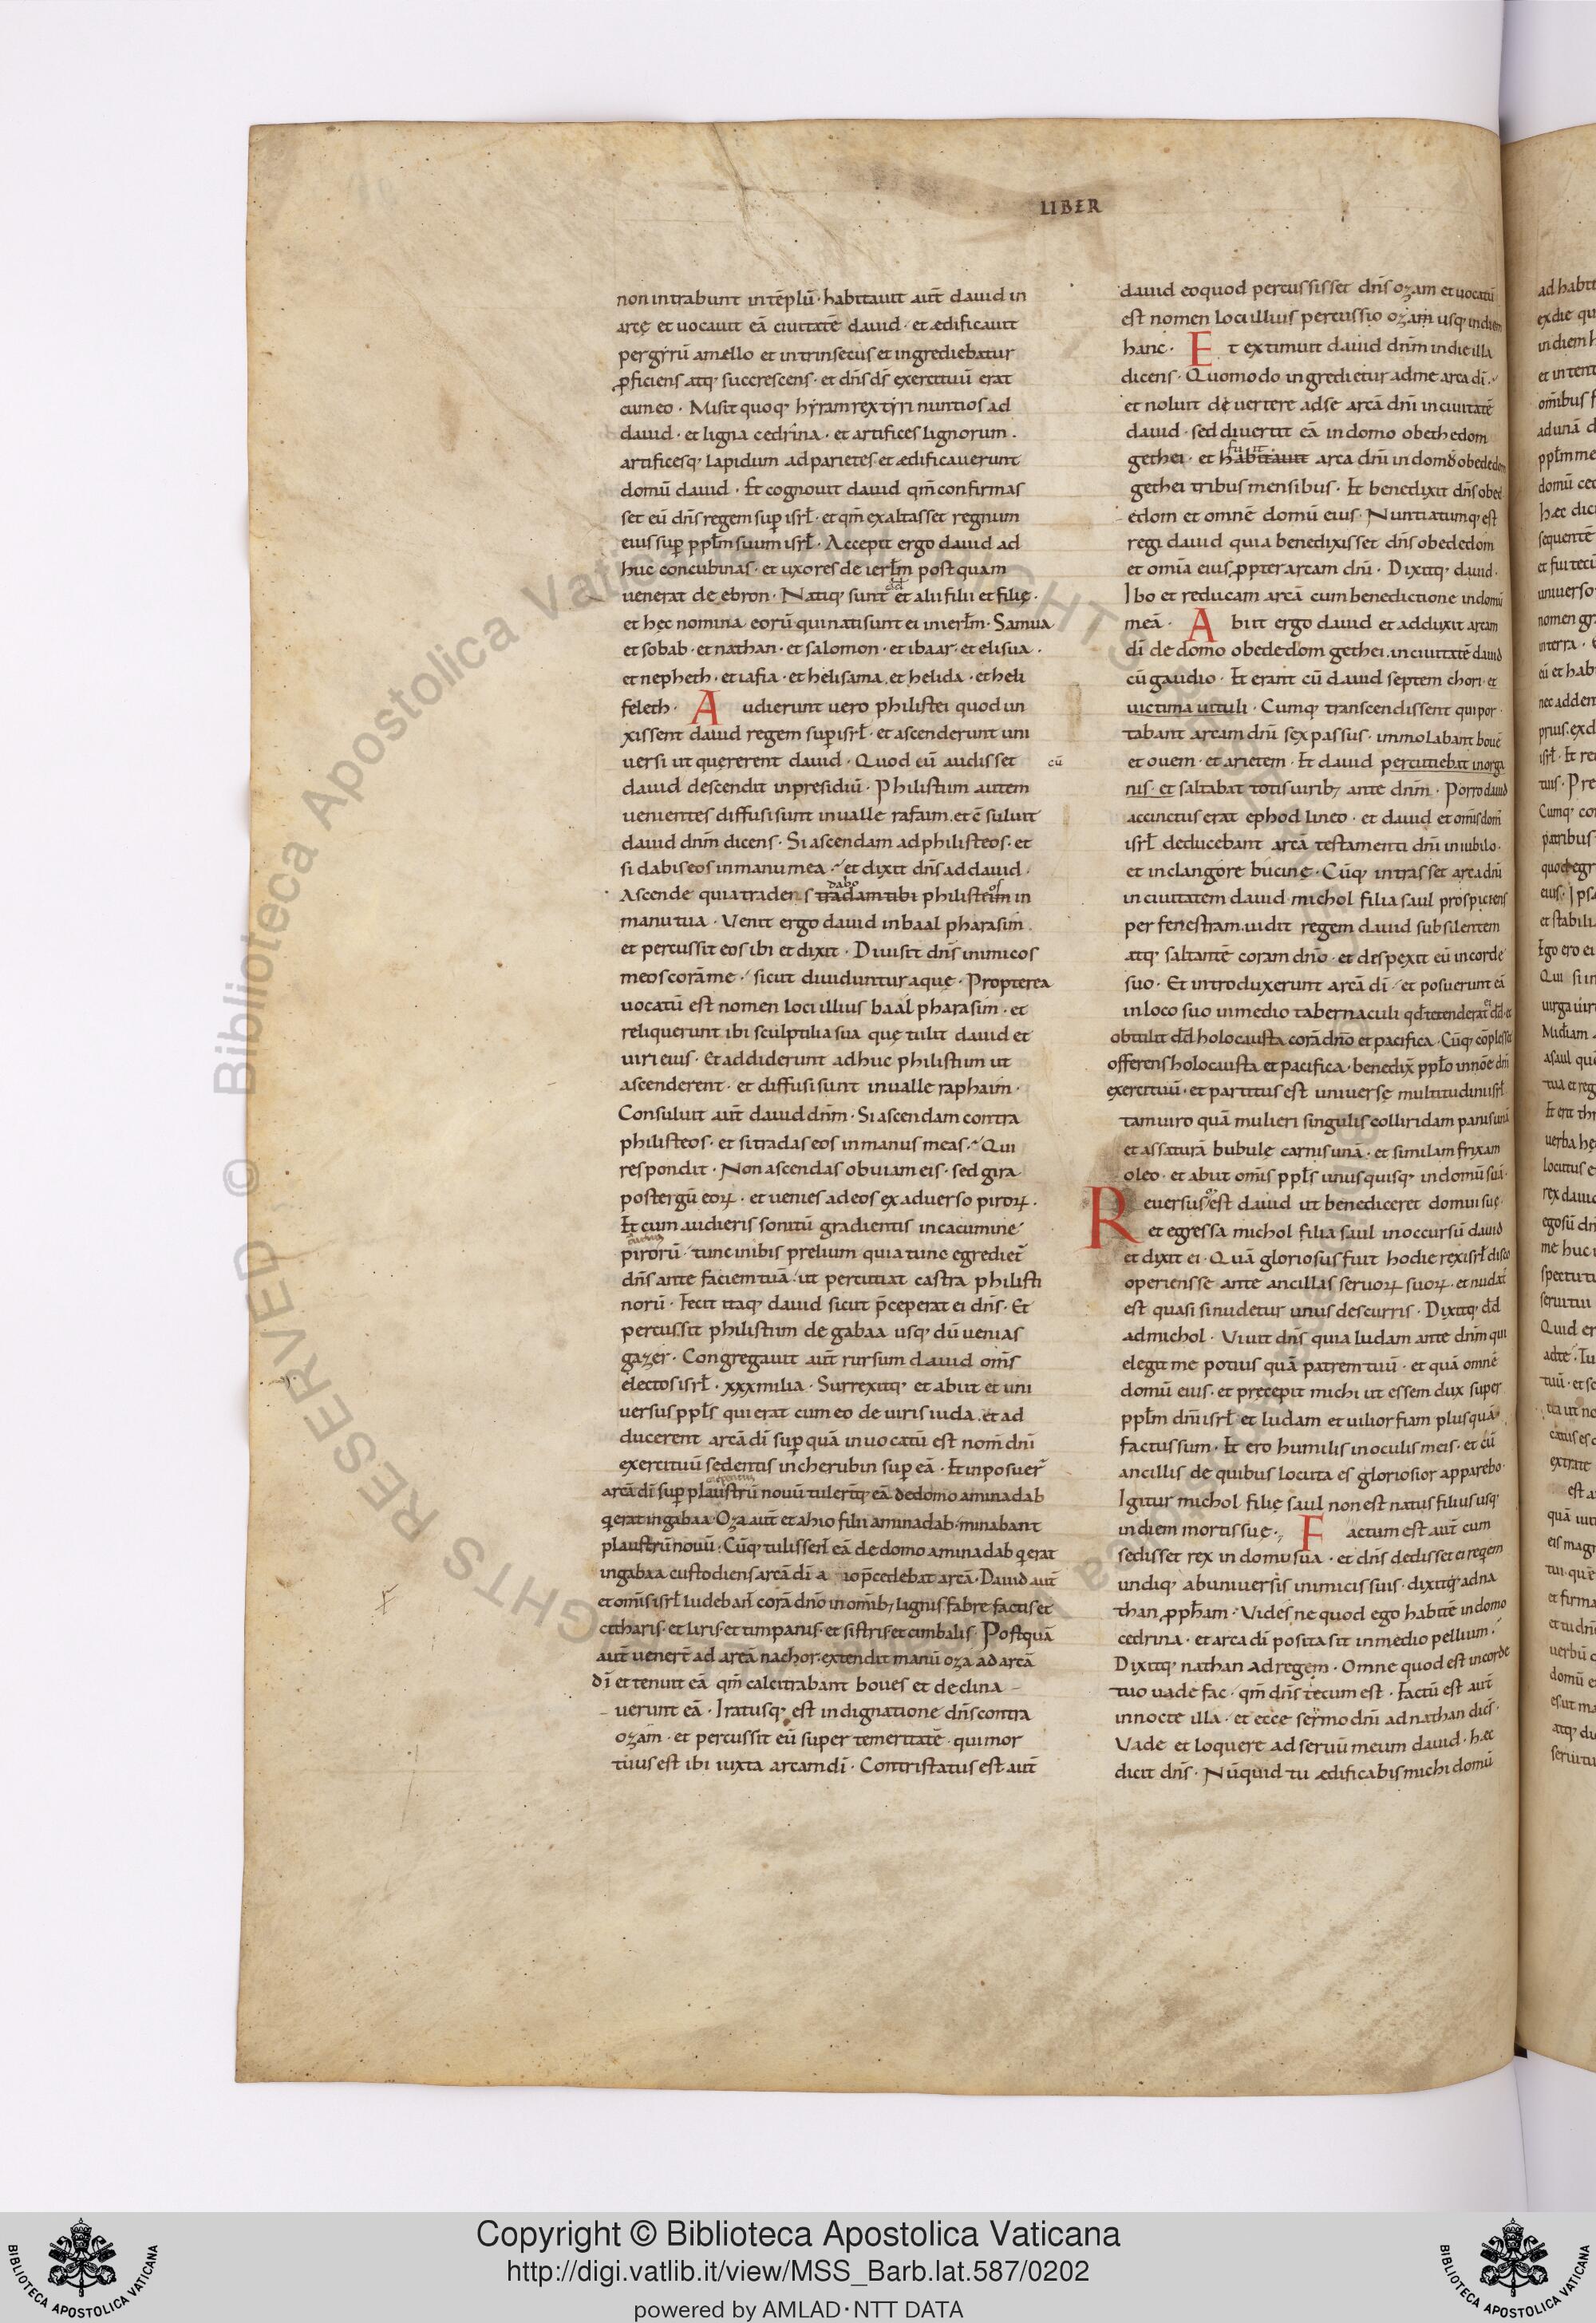 LIBER
non intrabunt in tēplū · habitauit aut̄ dauid in
arce et uocauit eā ciuitatē dauid · et ædificauit
per gyrū amello et intrinsecus et ingrediebatur
p̱ficiens atq; succrescens · et dn̄s ds̄ exercituū erat
cum eo · Misit quoq; hyram rex tyri nuntios ad
dauid · et ligna cedrina · et artifices lignorum ·
artificesq; lapidum ad parietes et ædificauerunt
domū dauid · Et cognouit dauid qm̄ confirmas
set eū dn̄s regem sup̱ isrl̄ · et qm̄ exaltasset regnum
eius sup̱ ppl̄m suum isrl̄ · Accepit ergo dauid ad
huc concubinas · et uxores de ierl̄m postquam
uenerat de ebron · Natiq; sunt dd̄ et alii filii et filię ·
et hęc nomina eorū qui nati sunt ei in ierl̄m · Samua
et sobab · et nathan · et salomon · et ibaar · et elisua ·
et nepheth · et iafia · et helisama · et helida · et heli
feleth · Audierunt uero philistei quod un
xissent dauid regem sup̱ isrl̄ · et ascenderunt uni
uersi ut quererent dauid · Quod cū audisset
cū
dauid descendit in presidiū · Philistiim autem
uenientes diffusi sunt in ualle rafaim · et c̄suluit
dauid dnm̄ dicens · Si ascendam ad philisteos · et
si dabis eos in manu mea · et dixit dn̄s ad dauid ·
dabo
Ascende quia tradens tradam tibi philistiim in
manu tua · Venit ergo dauid in baal pharasim ·
et percussit eos ibi et dixit · Diuisit dn̄s inimicos
meos corā me · sicut diuiduntur aque · Propterea
uocatū est nomen loci illius baal pharasim · et
reliquerunt ibi sculptilia sua quę tulit dauid et
uiri eius · Et addiderunt adhuc philistiim ut
ascenderent · et diffusi sunt in ualle raphaim ·
Consuluit aut̄ dauid dnm̄ · Si ascendam contra
philisteos · et si tradas eos in manus meas · Qui
respondit · Non ascendas obuiam eis · sed gira
post ergū eoꝝ · et uenies ad eos ex aduerso piroꝝ ·
Et cum audieris sonitū gradientis in cacumine
pirorū · tunc inibis prelium quia tunc egrediet̄
dn̄s ante faciem tuā · ut percutiat castra philisti
norū · Fecit itaq; dauid sicut p̄ceperat ei dn̄s · Et
percussit philistiim de gabaa usq; dū uenias
gazer · Congregauit aut̄ rursum dauid om̄s
electos isrl̄ · xxx milia · Surrexitq; et abiit et uni
uersus ppl̄s qui erat cum eo de uiris iuda · et ad
ducerent arcā dī sup̱ quā inuocatū est nom̄ dnī
exercituū sedentis in cherubin sup̱ eā · Et inposuer̄
arcā dī sup̱ plaustrū nouū tulert̄q; eā de domo aminadab
q̇ erat in gabaa · Oza aut̄ et ahio filii aminadab · minabant
plaustrū nouū · Cūq; tulissent̄ eā de domo aminadab q̇ erat
in gabaa custodiens arcā dī a io p̄cedebat arcā · Dauid aut̄
et om̄s isrl̄ ludebant̄ corā dnō in omib; lignis fabre factis et
citharis · et liris · et timpanis · et sistris · et cimbalis · Postquā
aut̄ uenert̄ ad areā nachor · extendit manū oza ad arcā
dī et tenuit eā qm̄ calcitrabant boues et declina
uerunt eā · Iratusq; est indignatione dn̄s contra
ozam · et percussit eū super temeritatē · qui mor
tuus est ibi iuxta arcam dī · Contristatus est aut̄
dauid eo quod percussisset dn̄s ozam et uocatū
est nomen loci illius percussio ozam usq; in diem
hanc · Et extimuit dauid dnm̄ in die illa
dicens · Quomodo ingredietur ad me arca dī ·
et noluit deuertere ad se arcā dnī in ciuitatē
dauid · sed diuertit eā in domo obethedom
gethei · et habitauit arca dnī in domo obededom
gethei tribus mensibus · Et benedixit dn̄s obed
edom et omnē domū eius · Nuntiatumq; est
regi dauid quia benedixisset dn̄s obededom
et omīa eius p̱pter arcam dnī · Dixitq; dauid ·
Ibo et reducam arcā cum benedictione in domū
meā · Abiit ergo dauid et adduxit arcam
dī de domo obededom gethei · in ciuitatē dauid
cū gaudio · Et erant cū dauid septem chori · et
uictima uituli · Cumq; transcendissent qui por
tabant arcam dnī sex passus · immolabant bouē
et ouem · et arietem · Et dauid percutiebat in orga
nis · et saltabat totis uirib; ante dnm̄ · Porro dauid
accinctus erat ephod lineo · et dauid et omīs dom̄
isrl̄ deducebant arcā testamenti dnī in iubilo ·
et in clangore bucine · Cūq; intrasset arca dnī
in ciuitatem dauid · michol filia saul prospiciens
per fenestram · uidit regem dauid subsilentem
atq; saltantē coram dnō · et despexit eū in corde
suo · Et introduxerunt arcā dī · et posuerunt eā
in loco suo in medio tabernaculi qd̄ tetenderat ei dd̄ · et
obtulit dd̄ holocausta corā dnō et pacifica · Cūq; cōplesset
offerens holocausta et pacifica · benedix̄ ppl̄o in noīe dnī
exercituū · et partitus est uniuersę multitudini isrl̄
tam uiro quā mulieri singulis colliridam panis unā
et assaturā bubulę carnis unā · et similam frixam
oleo · et abiit omīs ppl̄s unusquisq; in domū suā ·
Reuersusq; est dauid ut benediceret domui suę ·
et egressa michol filia saul in occursū dauid
et dixit ei · Quā gloriosus fuit hodie rex isrl̄ disco
operiens se ante ancillas seruoꝝ suoꝝ · et nudat̄
est quasi si nudetur unus de scurris · Dixitq; dd̄
ad michol · Viuit dn̄s quia ludam ante dnm̄ qui
elegit me potius quā patrem tuū · et quā omnē
domū eius · et precepit michi ut essem dux super
ppl̄m dnī isrl̄ et ludam et uilior fiam plus quā
factus sum · Et ero humilis in oculis meis · et cū
ancillis de quibus locuta es gloriosior apparebo ·
Igitur michol filię saul non est natus filius usq;
in diem mortis suę · Factum est aut̄ cum
sedisset rex in domu sua · et dn̄s dedisset ei regem
undiq; ab uniuersis inimicis suis · dixitq; ad na
than p̱ph̄am · Vides ne quod ego habitē in domo
cedrina · et arca dī posita sit in medio pellium ·
Dixitq; nathan ad regem · Omne quod est in corde
tuo uade fac · qm̄ dn̄s tecum est · Factū est aut̄
in nocte illa · et ecce sermo dnī ad nathan dicēs ·
Vade et loquere ad seruū meum dauid · hæc
dicit dn̄s · Nūquid tu ædificabis michi domū
Copyright © Biblioteca Apostolica Vaticana
http://digi.vatlib.it/view/MSS_Barb.lat.587/0202
powered by AMLAD · NTT DATA